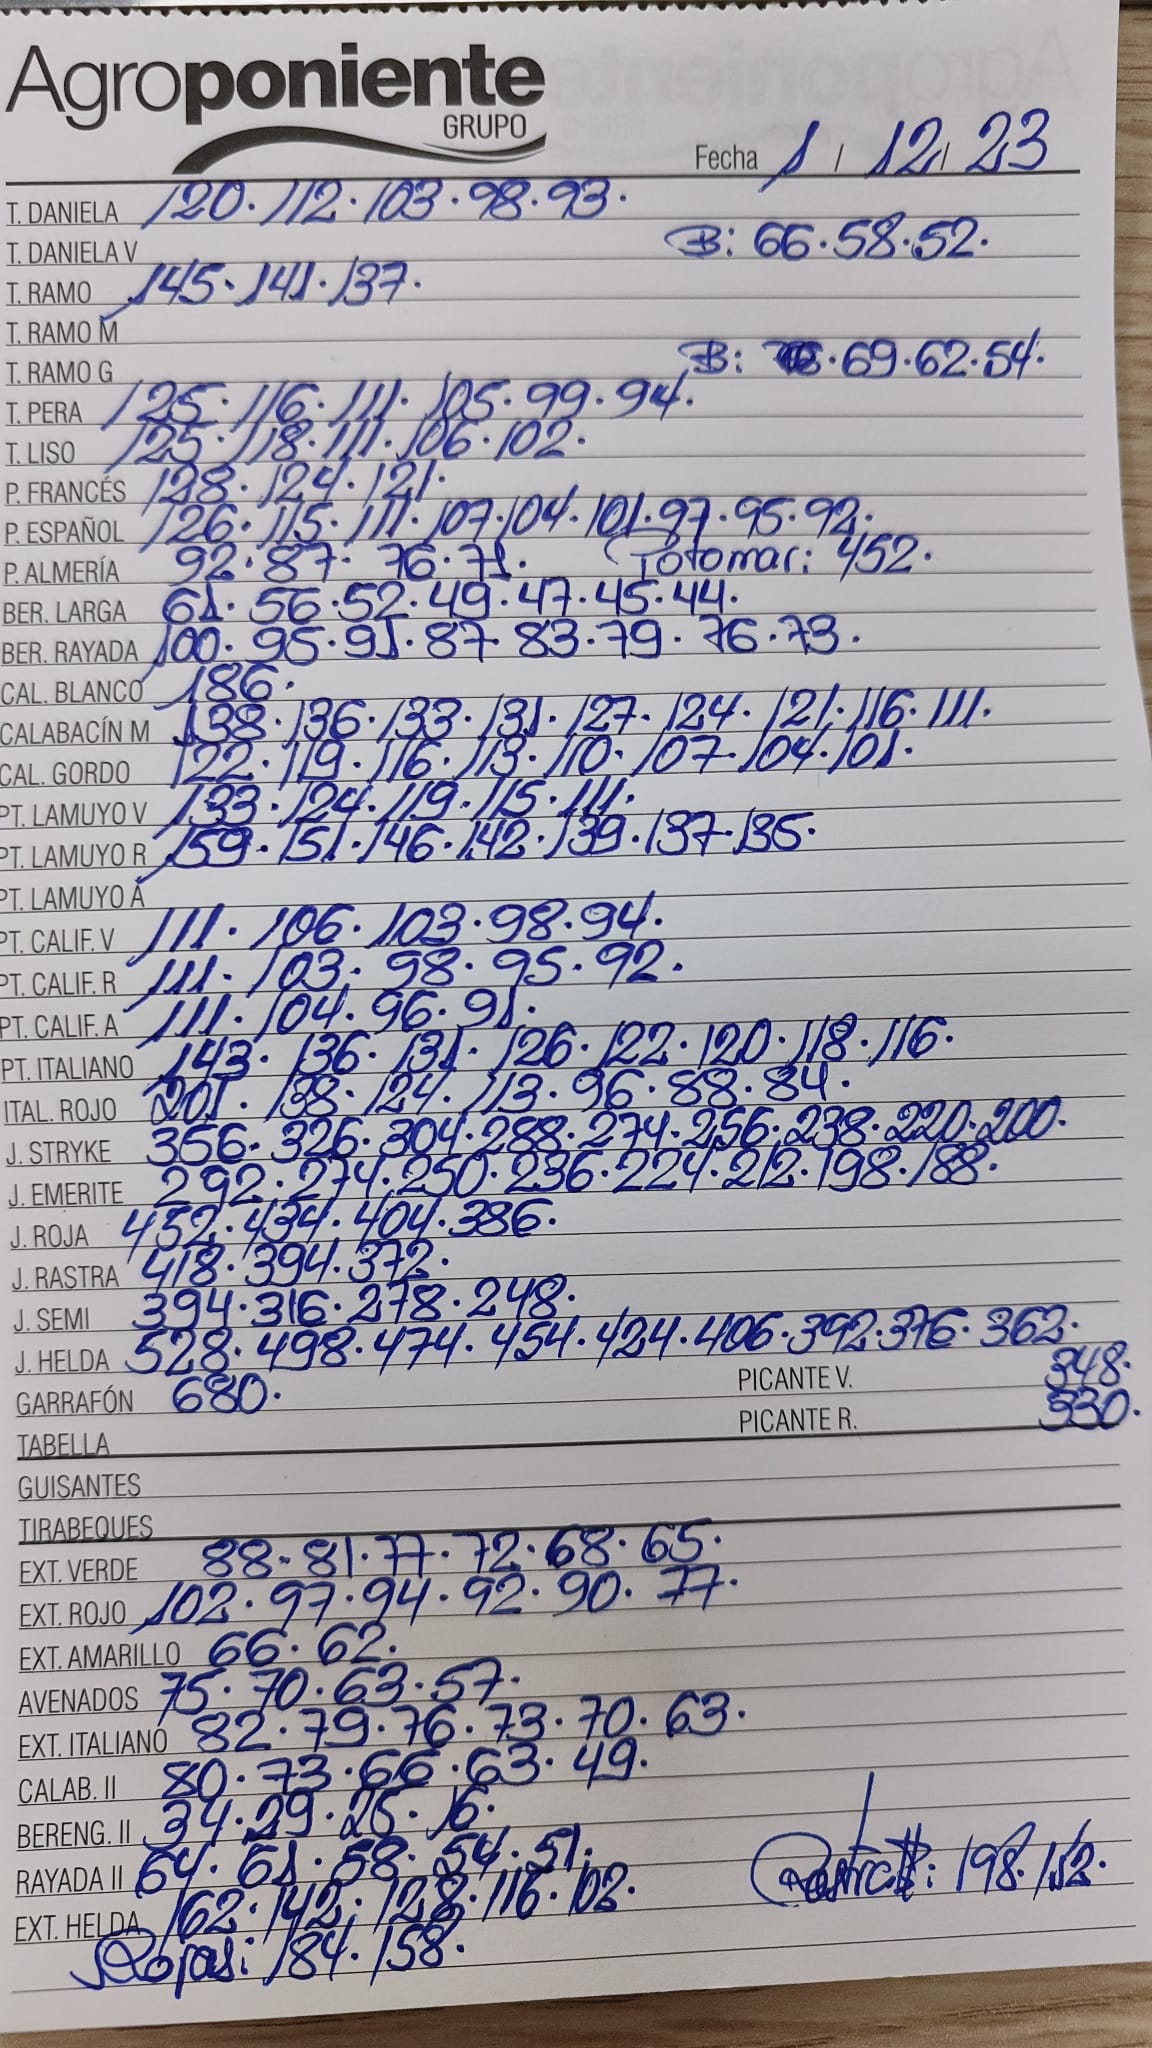 Agroponiente
GRUPO
Fecha 1 / 12 / 23
T. DANIELA 120. 112. 103. 98. 93.
T. DANIELA V B: 66. 58. 52.
T. RAMO 145. 141. 137.
T. RAMO M
T. RAMO G B: 69. 62. 54.
T. PERA 125. 116. 111. 105. 99. 94.
T. LISO 125. 118. 111. 106. 102.
P. FRANCÉS 128. 124. 121.
P. ESPAÑOL 126. 115. 111. 107. 104. 101. 97. 95. 92.
P. ALMERÍA 92. 87. 76. 71. 452.
BER. LARGA 61. 56. 52. 49. 47. 45. 44.
BER. RAYADA 100. 95. 91. 87. 83. 79. 76. 73.
CAL. BLANCO 186.
CALABACÍN M 138. 136. 133. 131. 127. 124. 121. 116. 111.
CAL. GORDO 122. 119. 116. 113. 110. 107. 104. 101.
PT. LAMUYO V 133. 124. 119. 115. 111.
PT. LAMUYO R 159. 151. 146. 142. 139. 137. 135.
PT. LAMUYO A
PT. CALIF. V 111. 106. 103. 98. 94.
PT. CALIF. R 111. 103. 98. 95. 92.
PT. CALIF. A 111. 104. 96. 91.
PT. ITALIANO 143. 136. 131. 126. 122. 120. 118. 116.
ITAL. ROJO 201. 138. 124. 113. 96. 88. 84.
J. STRYKE 356. 326. 304. 288. 274. 256. 238. 220. 200.
J. EMERITE 292. 274. 250. 236. 224. 212. 198. 188.
J. ROJA 452. 434. 404. 386.
J. RASTRA 418. 394. 372.
J. SEMI 394. 316. 278. 248.
J. HELDA 528. 498. 474. 454. 424. 406. 392. 376. 362.
GARRAFÓN 680. PICANTE V. 348.
TABELLA PICANTE R. 330.
GUISANTES
TIRABEQUES
EXT. VERDE 88. 81. 77. 72. 68. 65.
EXT. ROJO 102. 97. 94. 92. 90. 77.
EXT. AMARILLO 66. 62.
AVENADOS 75. 70. 63. 57.
EXT. ITALIANO 82. 79. 76. 73. 70. 63.
CALAB. II 80. 73. 66. 63. 49.
BERENG. II 34. 29. 25. 16.
RAYADA II 64. 61. 58. 54. 51. Rastra II: 198. 152.
EXT. HELDA 162. 142. 128. 116. 102.
Rojas: 184. 158.